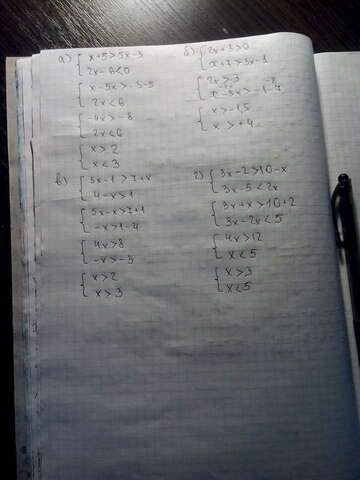 а) { x+5>5x-3
2x-6<0
{ x-5x>-3-5
2x<6
{ -4x>-8
2x<6
{ x>2
x<3
б) { 2x+3>0
{ 2x>-3
{ x>-1,5
x>+4
в) { 5x-1>7+x
4-x>1
{ 5x-x>7+1
-x>1-4
{ 4x>8
-x>-3
{ x>2
x>3
г) { 3x-2>10-x
3x-5<2x
{ 3x+x>10+2
3x-2x<5
{ 4x>12
x<5
{ x>3
x<5